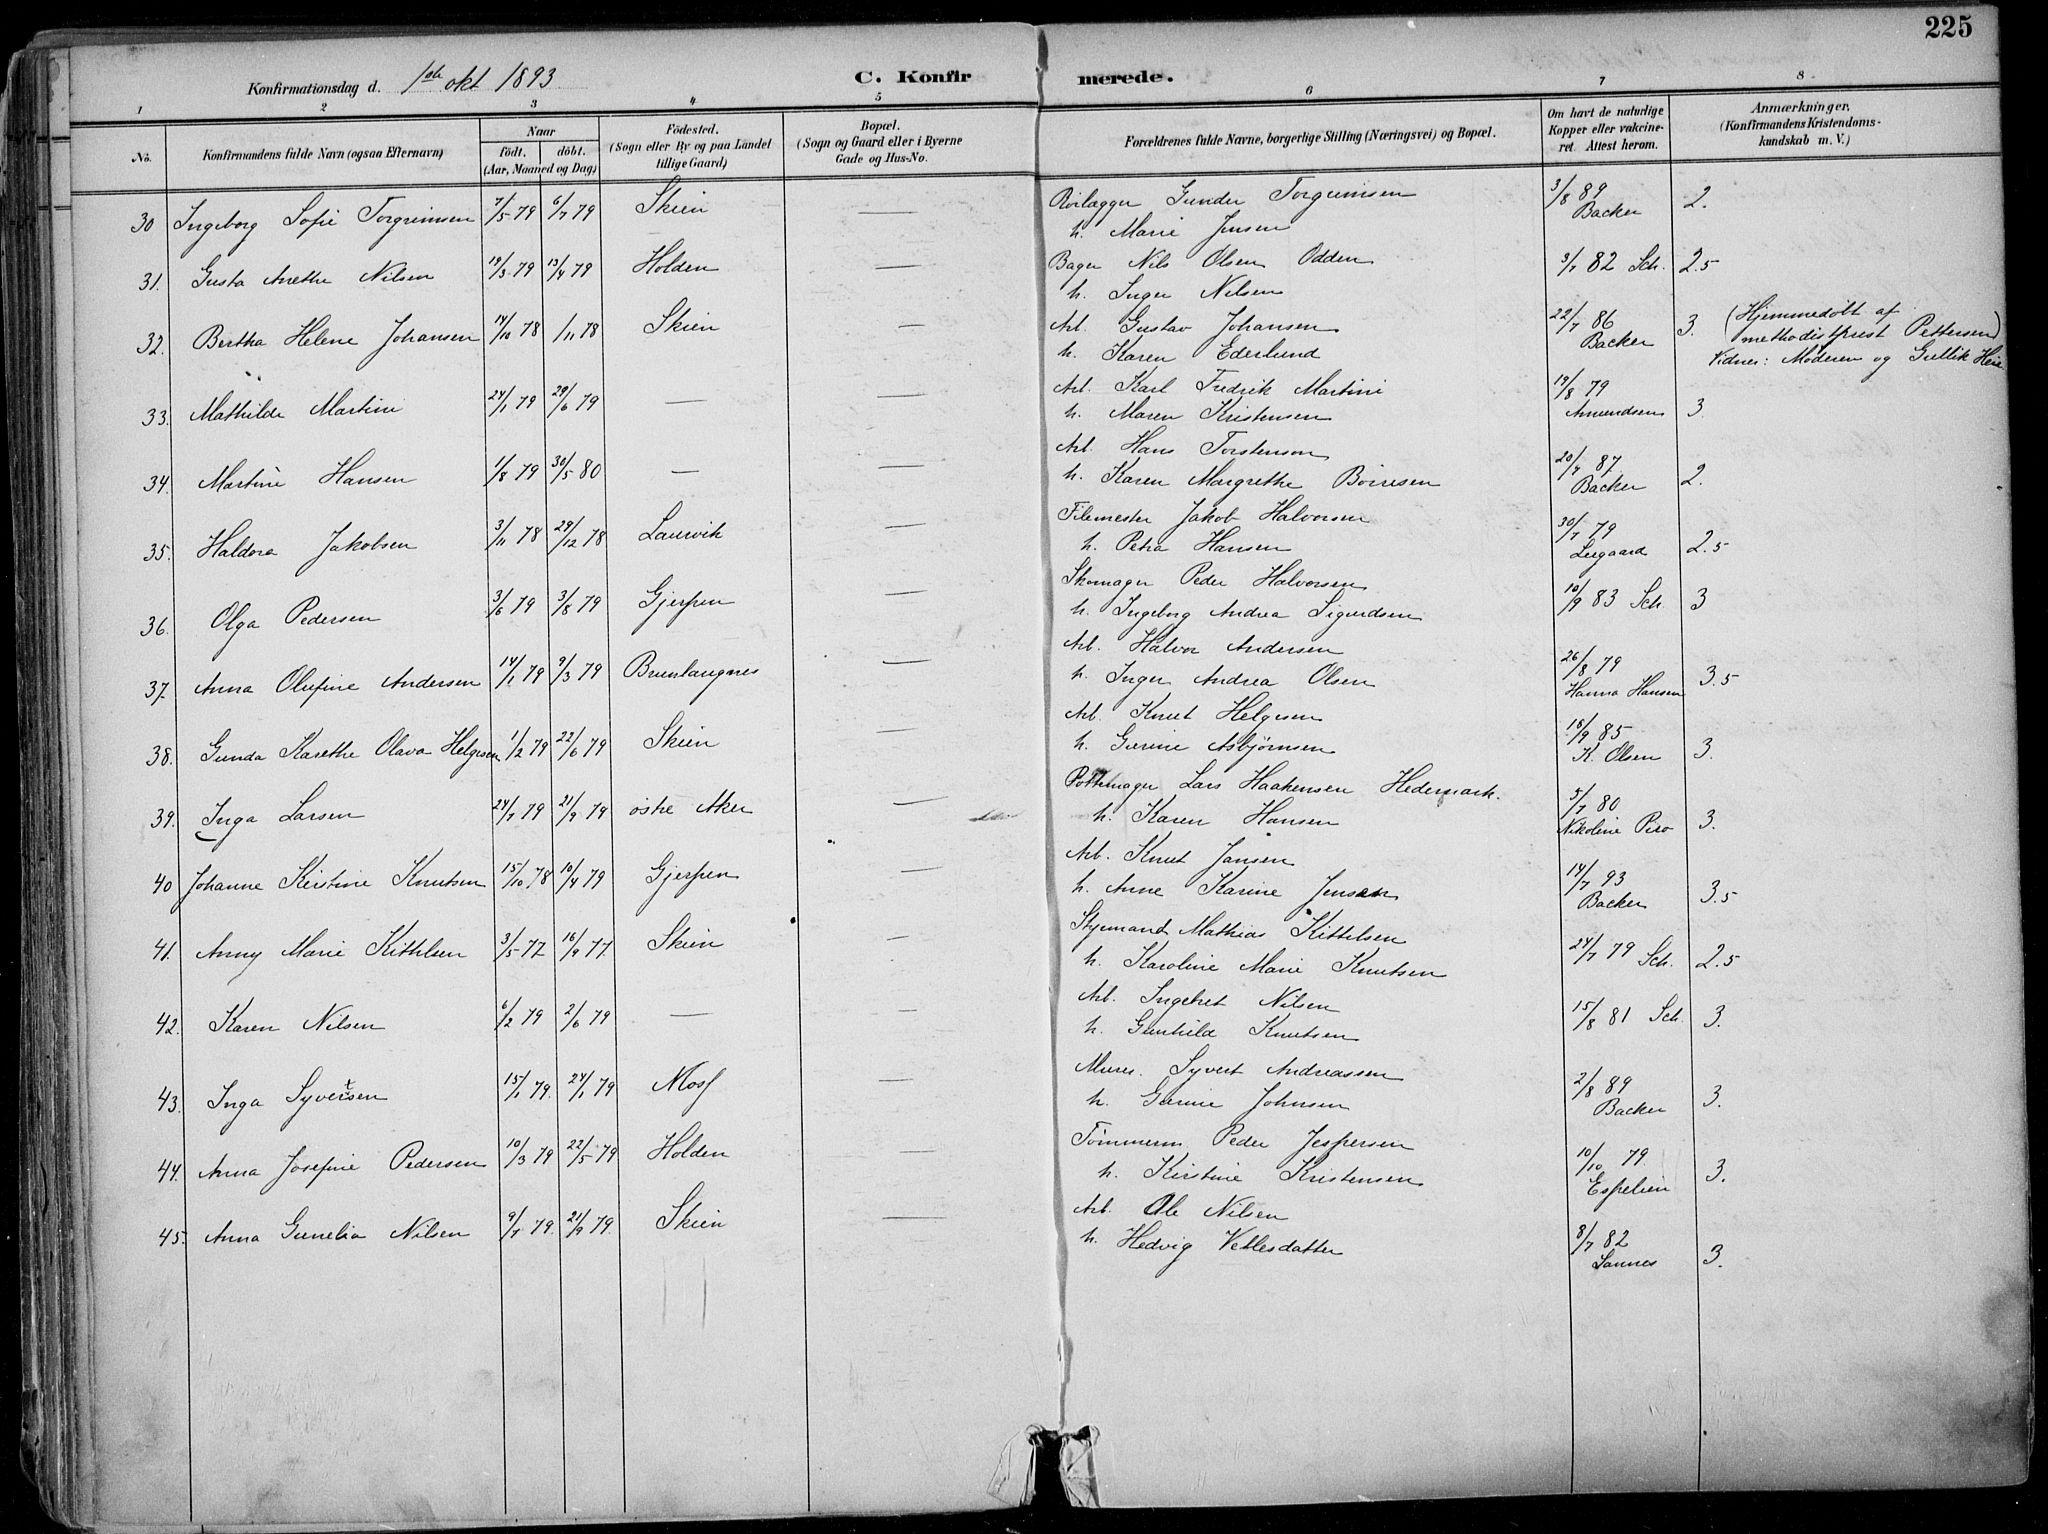 225
Konfirmationsdag d. 1ste okt 1893. C. Konfirmerede.
1 2 3 4 5 6 7 8
No. Konfirmandens fulde Navn (ogsaa Efternavn) Naar födt, döbt. (Aar, Maaned og Dag) Födested. (Sogn eller By og paa Landet tillige Gaard) Bopæl. (Sogn og Gaard eller i Byerne Gade og Hus-No. Forældrenes fulde Navne, borgerlige Stilling (Næringsvei) og Bopæl. Om havt de naturlige Kopper eller vakcineret. Attest herom. Anmærkninger. (Konfirmandens Kristendomskundskab m. V.)
30 Ingeborg Sofie Torgrimsen 7/5 79 6/7 79 Skien — Gunder Torgrimsen 3/8 89 Backer 2.
h. Marie Jensen
31. Gusta Anethe Nilsen 19/3 79 13/4 79 Holden — Bager Nils Olsen Odden 3/7 82 Sch. 2.5
h. Inger Nilsen
32. Bertha Helene Johansen 14/10 78 /11 78 Skien — Arb. Gustav Johansen 22/7 86 Backer 3. (Hjemmedöbt af methodistprest Pettersen)
h. Karen Ederlund Vidner: Moderen og Gullik
33. Mathilde Martini 24/1 79 29/6 79 — — Arb. Karl Fredrik Martini 19/8 79 Amundsen 3.
h. Maren Kristensen
34. Martine Hansen 1/8 79 30/5 80 — — Arb. Hans Torstenson 20/7 87 Backer 2.
h. Karen Margrethe Börresen
35. Haldora Jakobsen 3/11 78 29/12 78 Laurvik — Filemester Jakob Halvorsen 30/7 79 Lergaard 2.5
h. Petra Hansen
36. Olga Pedersen 3/6 79 3/8 79 Gjerpen — Skomager Peder Halvorsen 10/9 83 Sch. 3
h. Ingeborg Andrea Sigurdsen
37. Anna Olufine Andersen 14/1 79 9/3 79 Brunlangnes — Arb. Halvor Andersen 26/8 79 Hanna Hansen 3.5
h. Inger Andrea Olsen
38. Gunda Karethe Olava Helgesen 1/2 79 22/6 79 Skien — Arb. Knut Helgesen 18/9 85 K. Olsen 3.
h. Gurine Asbjørnsen
39. Inga Larsen 24/7 79 21/9 79 östre Aker — Pottemager Lars Haakensen Hedemark. 5/7 80 Nikoline Piro 3.
h. Karen Hansen
40 Johanne Kirstine Knutsen 15/10 78 10/4 79 Gjerpen — Arb. Knut Jansen 14/7 93 Backer 3.5
h. Anne Karine Jensen
41. Anny Marie Kittilsen 3/5 77 16/9 77. Skien — Styrmand Mathias Kittilsen 24/7 79 Sch. 2.5
h. Karoline Marie Knutsen
42. Karen Nilsen 6/2 79 2/6 79 — — Arb. Ingebret Nilsen 15/8 81 Sch. 3.
h. Gunhild Knutsen
43. Inga Syvertsen 15/1 79. 24/1 79 Moss — Murer. Syvert Andreassen 2/8 89 Backer 3.
h. Gurine Johnsen
44. Anna Josefine Pedersen 10/3 79 22/5 79 Holden — Tömmerm. Peder Jespersen 10/10 79 Espelien 3.
h. Kirstine Kristensen
45. Anna Gunelia Nilsen 9/7 79. 21/9 79. Skien — Arb. Ole Nilsen 8/7 82 Sannes 3.
h. Hedvig Vetlesdatter